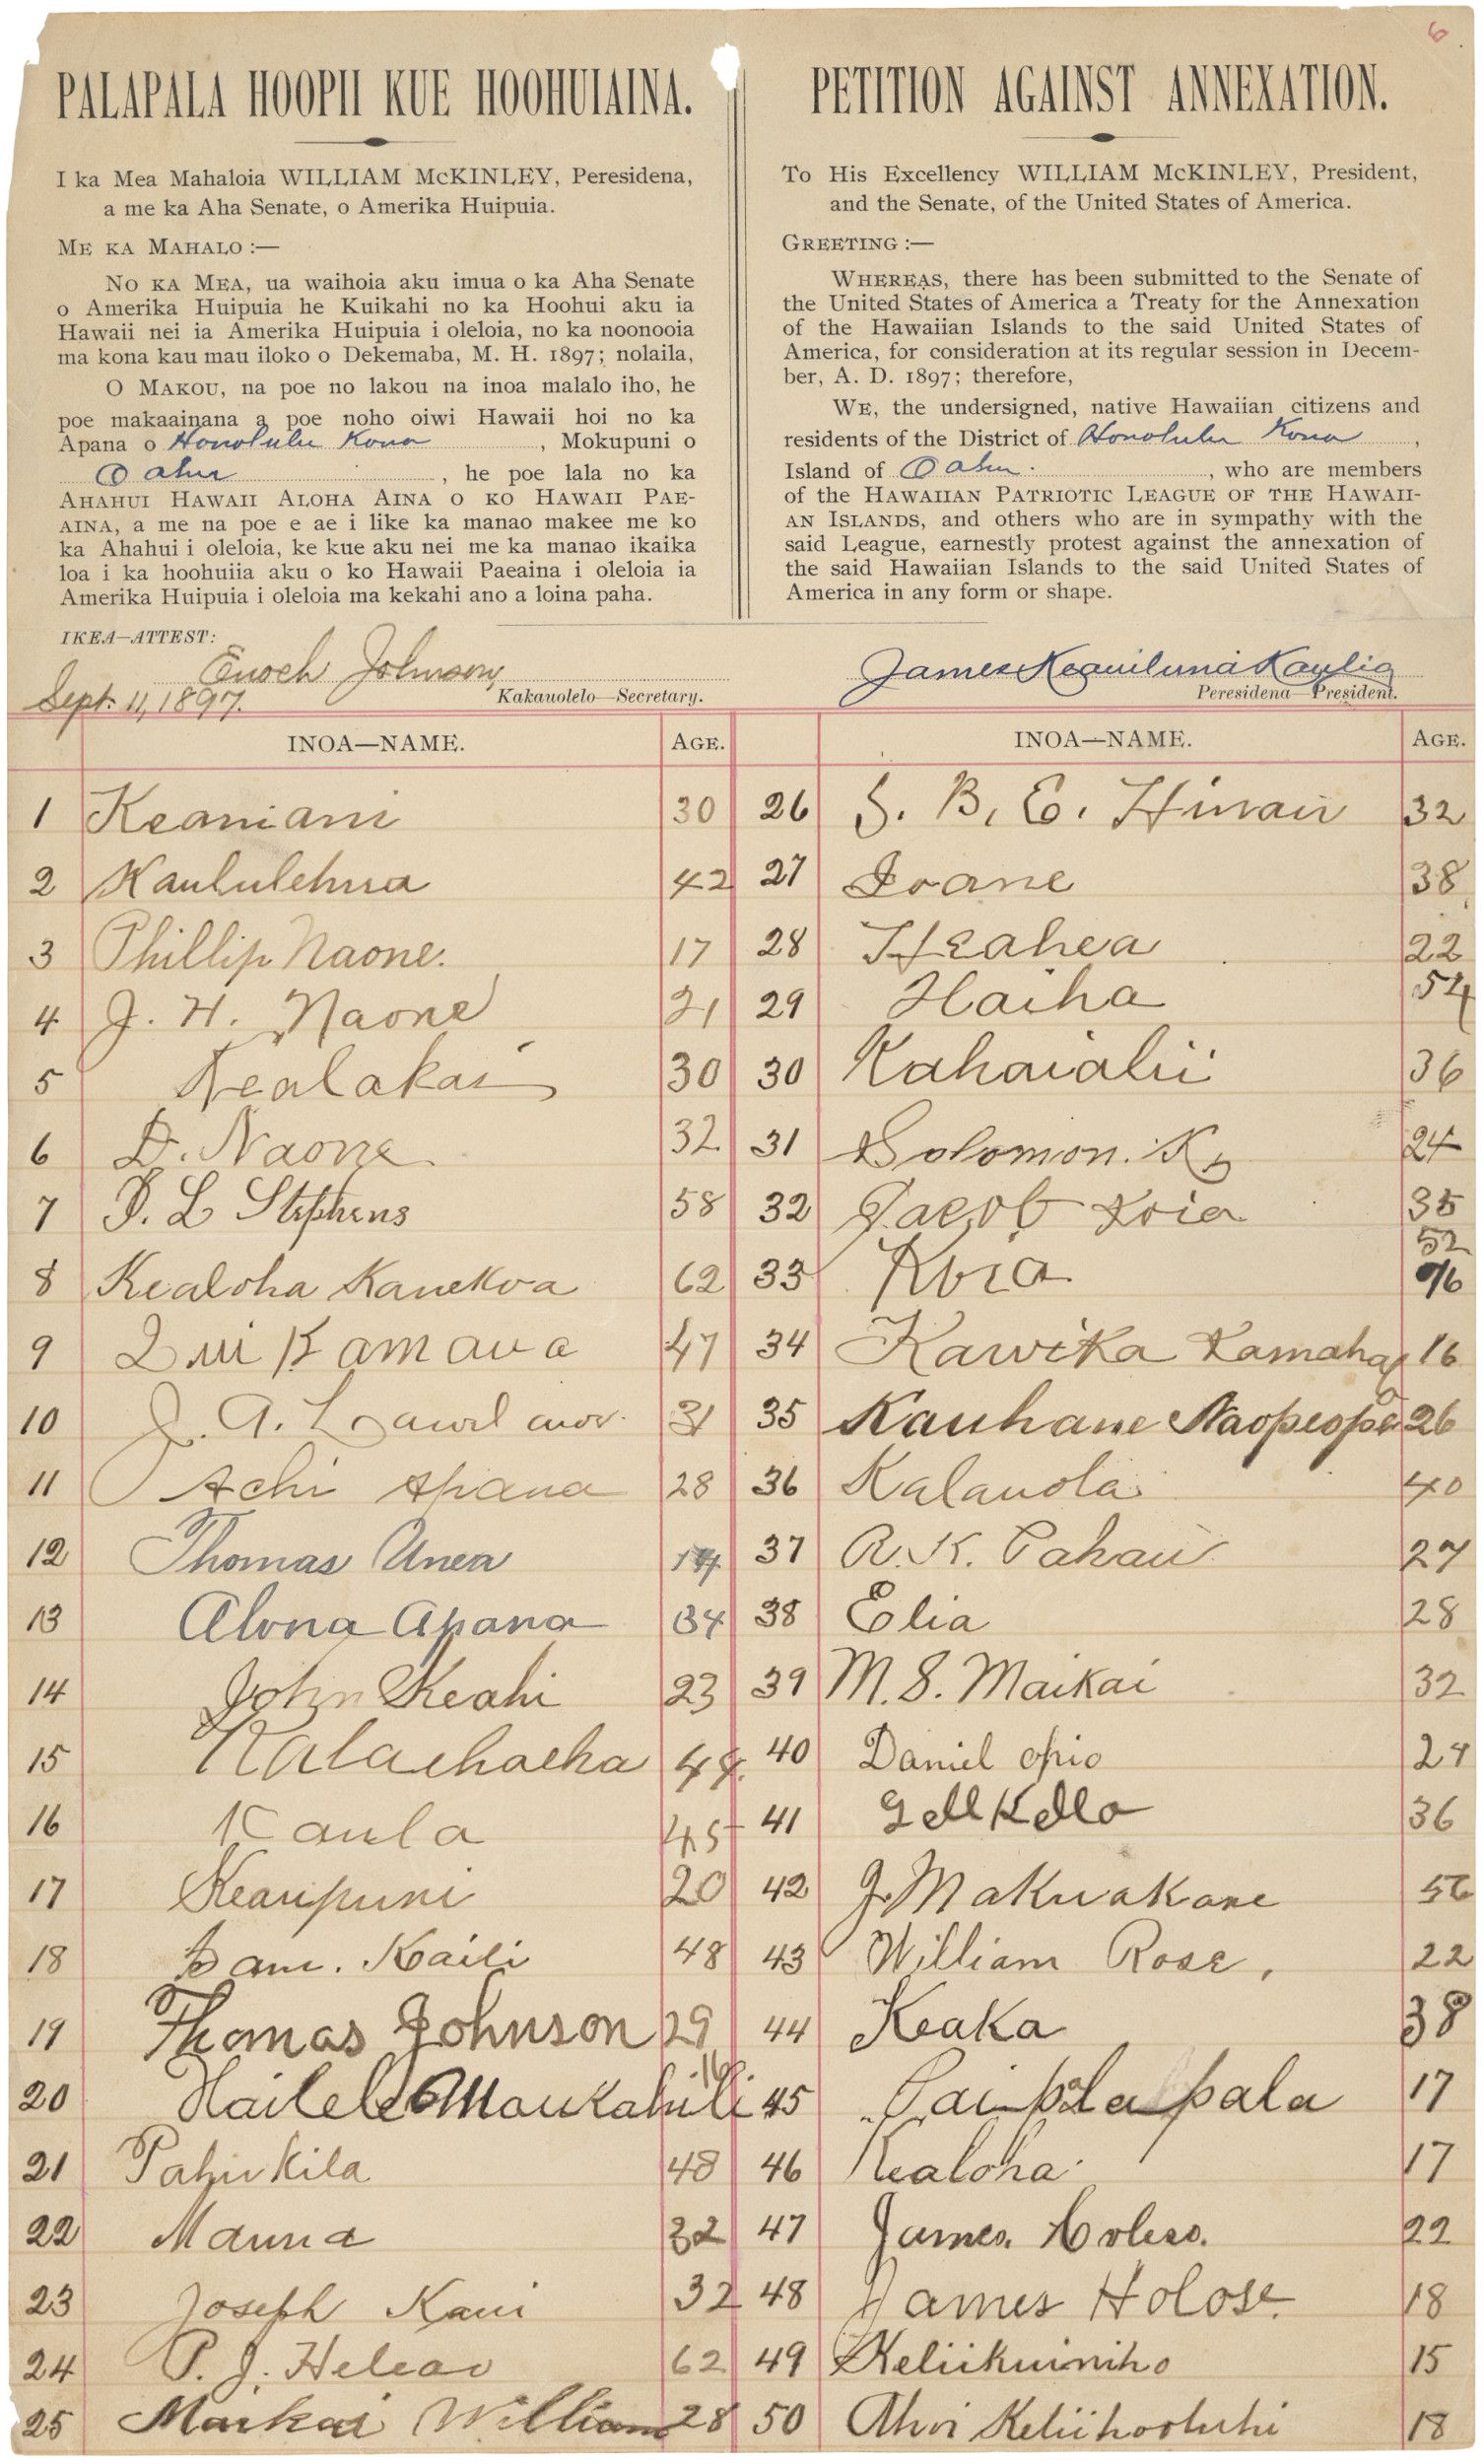 6
PALAPALA HOOPII KUE HOOHUIAINA.
I ka Mea Mahaloia WILLIAM McKINLEY, Peresidena,
a me ka Aha Senate, o Amerika Huipuia.
ME KA MAHALO:—
NO KA MEA, ua waihoia aku imua o ka Aha Senate
o Amerika Huipuia he Kuikahi no ka Hoohui aku ia
Hawaii nei ia Amerika Huipuia i oleloia, no ka noonooia
ma kona kau mau iloko o Dekemaba, M. H. 1897; nolaila,
O MAKOU, na poe no lakou na inoa malalo iho, he
poe makaainana a poe noho oiwi Hawaii hoi no ka
Apana o Honolulu Kona, Mokupuni o
Oahu, he poe lala no ka
AHAHUI HAWAII ALOHA AINA O KO HAWAII PAE-
AINA, a me na poe e ae i like ka manao makee me ko
ka Ahahui i oleloia, ke kue aku nei me ka manao ikaika
loa i ka hoohuiia aku o ko Hawaii Paeaina i oleloia ia
Amerika Huipuia i oleloia ma kekahi ano a loina paha.
PETITION AGAINST ANNEXATION.
To His Excellency WILLIAM McKINLEY, President,
and the Senate, of the United States of America.
GREETING:—
WHEREAS, there has been submitted to the Senate of
the United States of America a Treaty for the Annexation
of the Hawaiian Islands to the said United States of
America, for consideration at its regular session in Decem-
ber, A. D. 1897; therefore,
WE, the undersigned, native Hawaiian citizens and
residents of the District of Honolulu Kona,
Island of Oahu., who are members
of the HAWAIIAN PATRIOTIC LEAGUE OF THE HAWAII-
AN ISLANDS, and others who are in sympathy with the
said League, earnestly protest against the annexation of
the said Hawaiian Islands to the said United States of
America in any form or shape.
IKEA—ATTEST:
Enoch Johnson
Sept. 11, 1897.
Kakauolelo—Secretary.
James Keauiluna Kaulia
Peresidena—President.
INOA—NAME. AGE.
1 Keaniani 30
2 Kaululehua 42
3 Phillip Naone. 17
4 J. H. Naone 21
5 Kealakai 30
6 D. Naone 32
7 L Stephens 58
8 Kealoha Kanekoa 62
9 Kamaua 47
10 J. A. 31
11 Achi Apana 28
12 Thomas Unea
13 Alona Apana 34
14 John Keahi 23
15 Kalaehaeha
16 Kaula 45
17 Keaupuni 20
18 Sam. Kaili 48
19 Thomas Johnson 29
20 Hailele Maukahili 16
21 Pahukila 48
22 Mauna 32
23 Joseph Kaui 32
24 P. J. Heleao 62
25 Maikai William 28
INOA—NAME. AGE.
26 S. B. E. 32
27 Ioane 38
28 Heahea 22
29 Haiha 54
30 Kahaialii 36
31 Solomon. K 24
32 Jacob Koia 35
33 Koia 52
34 Kawika Kamaha 16
35 Kauhane Naopeope 26
36 Kalauola 40
37 R. K. Pahau 27
38 Elia 28
39 M. S. Maikai 32
40 Daniel opio 24
41 36
42 J. Makuakane 56
43 William Rose, 22
44 Keaka 38
45 Paipalapala 17
46 Kealoha 17
47 James. 22
48 James Holose. 18
49 Keliikuiniho 15
50 Ahoi Keliihooluhi 18